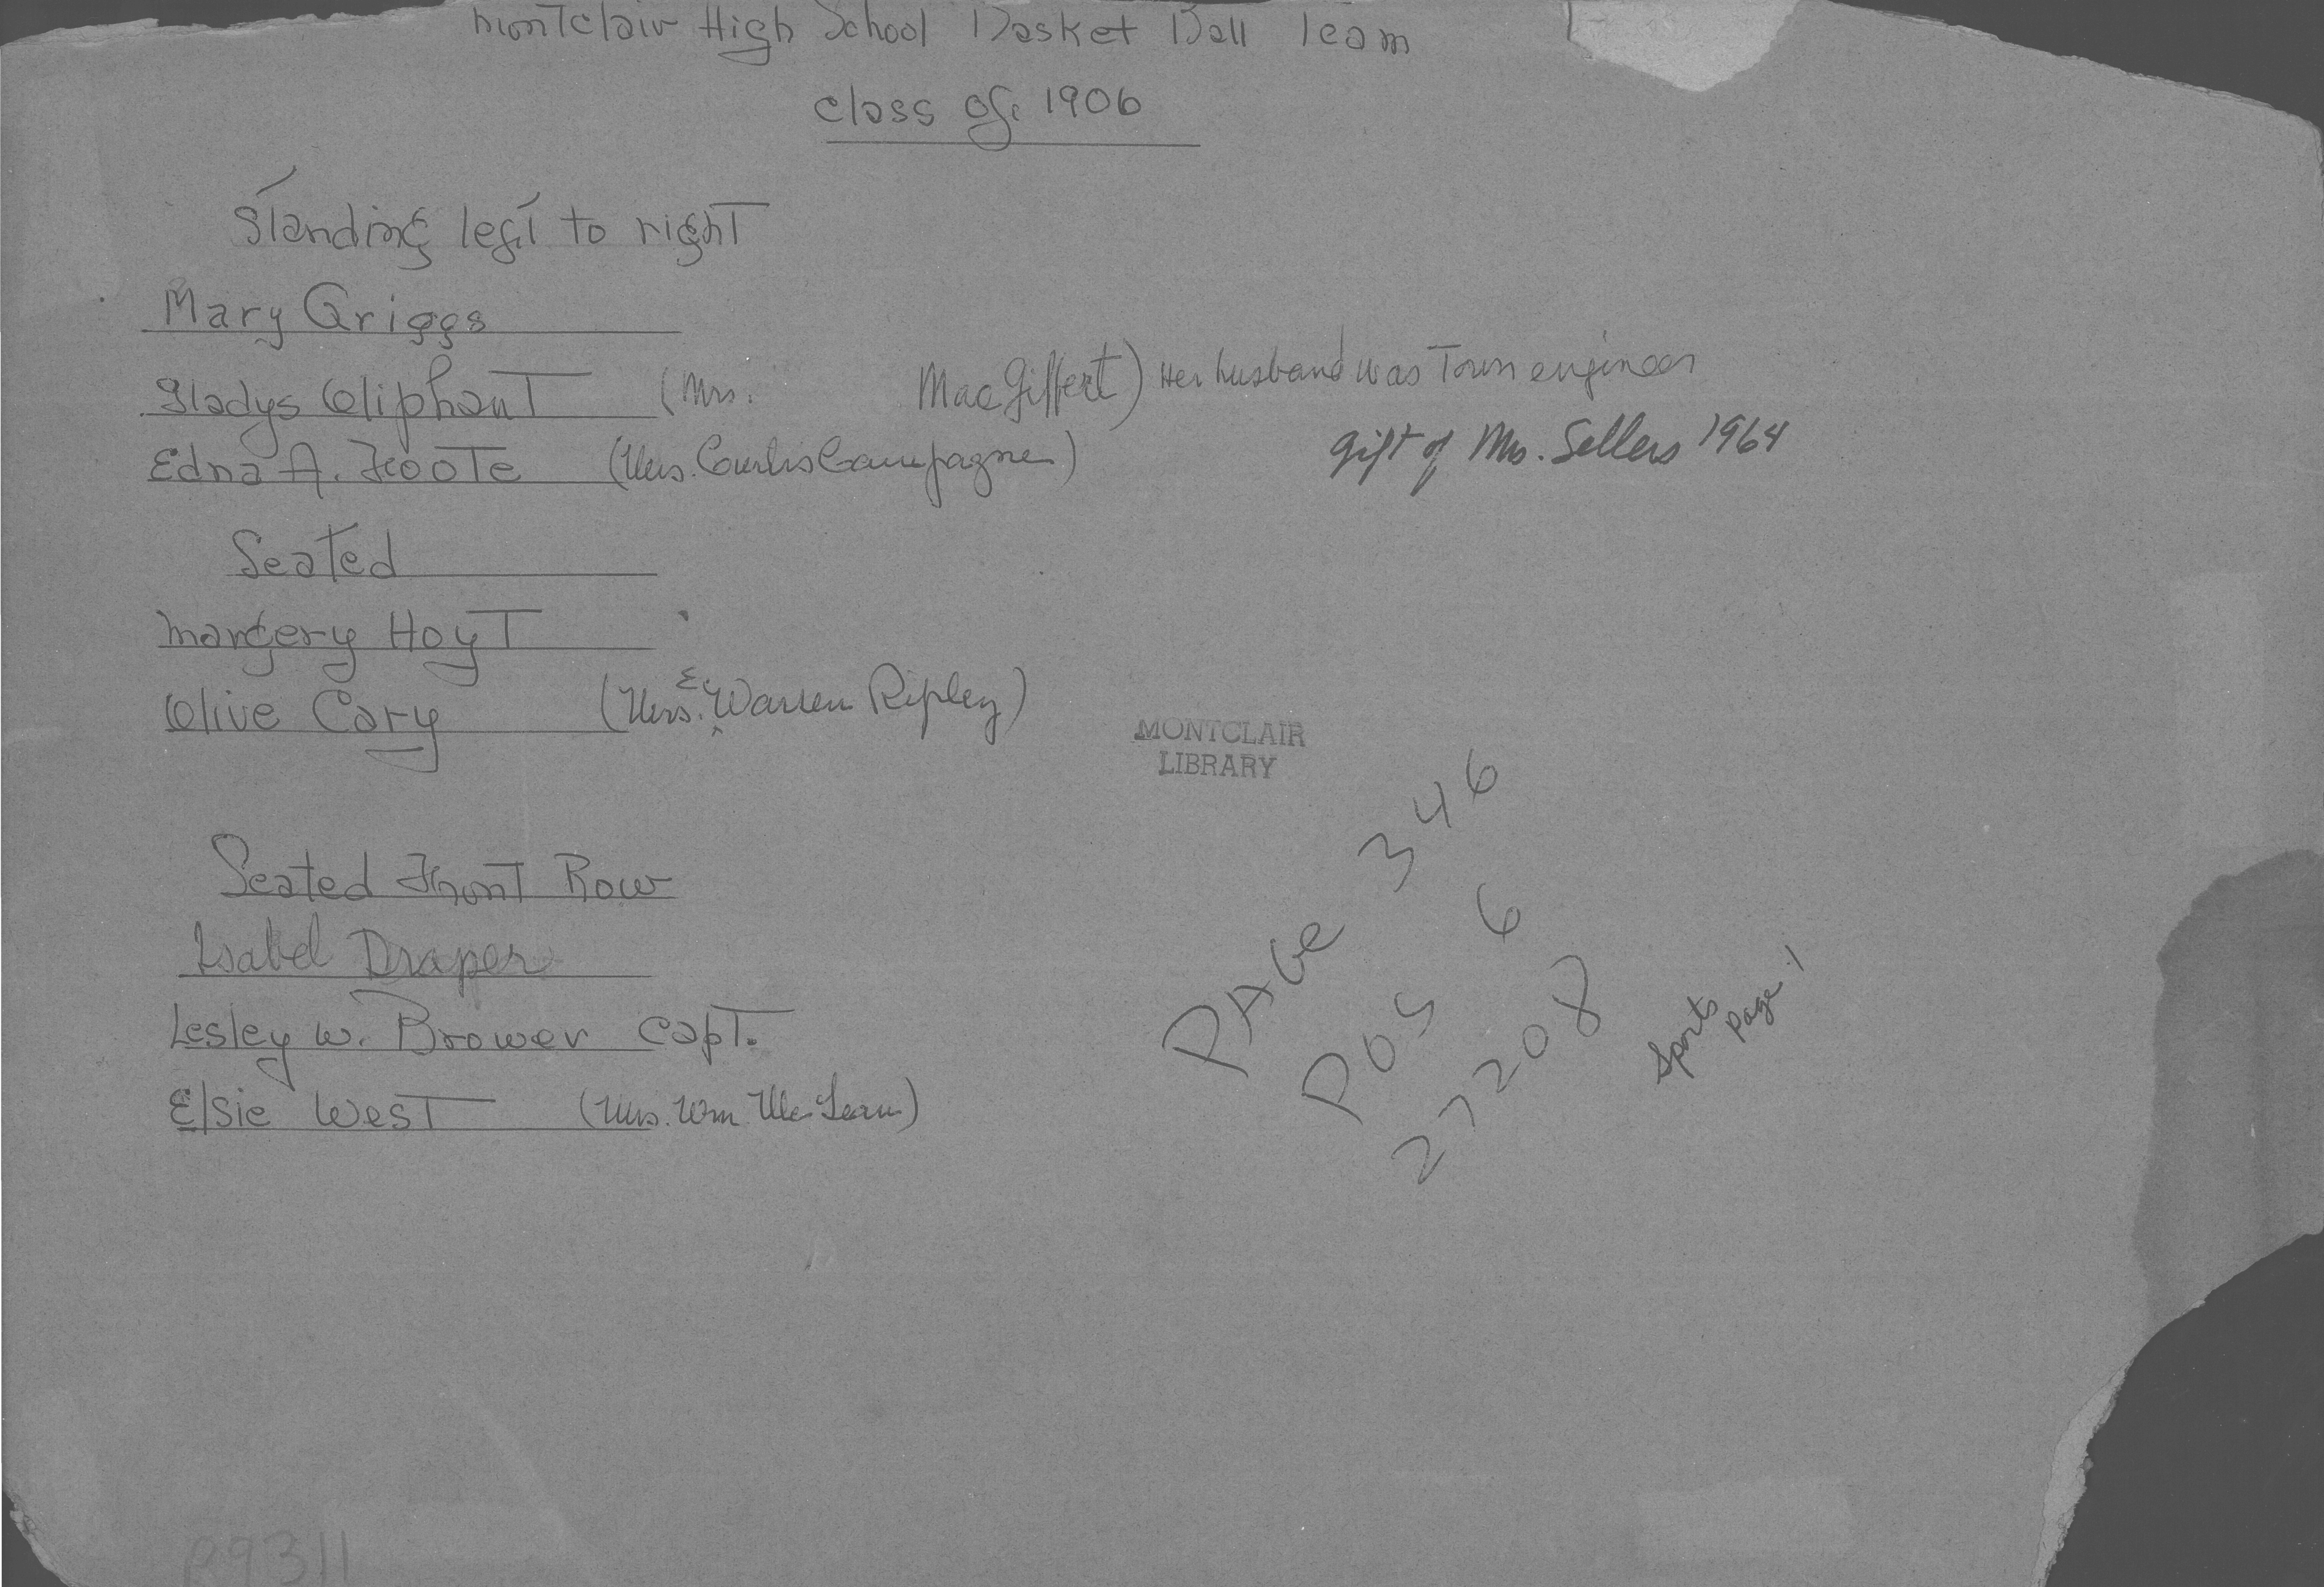 Montclair High School Basket Ball Team
class of 1906
Standing left to right
Mary Griggs
Gladys Oliphant (Mrs. MacGiffert) Her husband was Town engineer
Edna A. Foote (Mrs. Curtis Campagne)
gift of Mrs. Sellers 1964
Seated
Margery Hoyt
Olive Cary (Mrs. E. Warren Ripley)
MONTCLAIR
LIBRARY
Seated Front Row
Isabel Draper
Lesley W. Brower Capt.
Elsie West (Mrs. Wm. McLean)
PAGE 346
POS 6
27208
Sports
Page 1
P9311